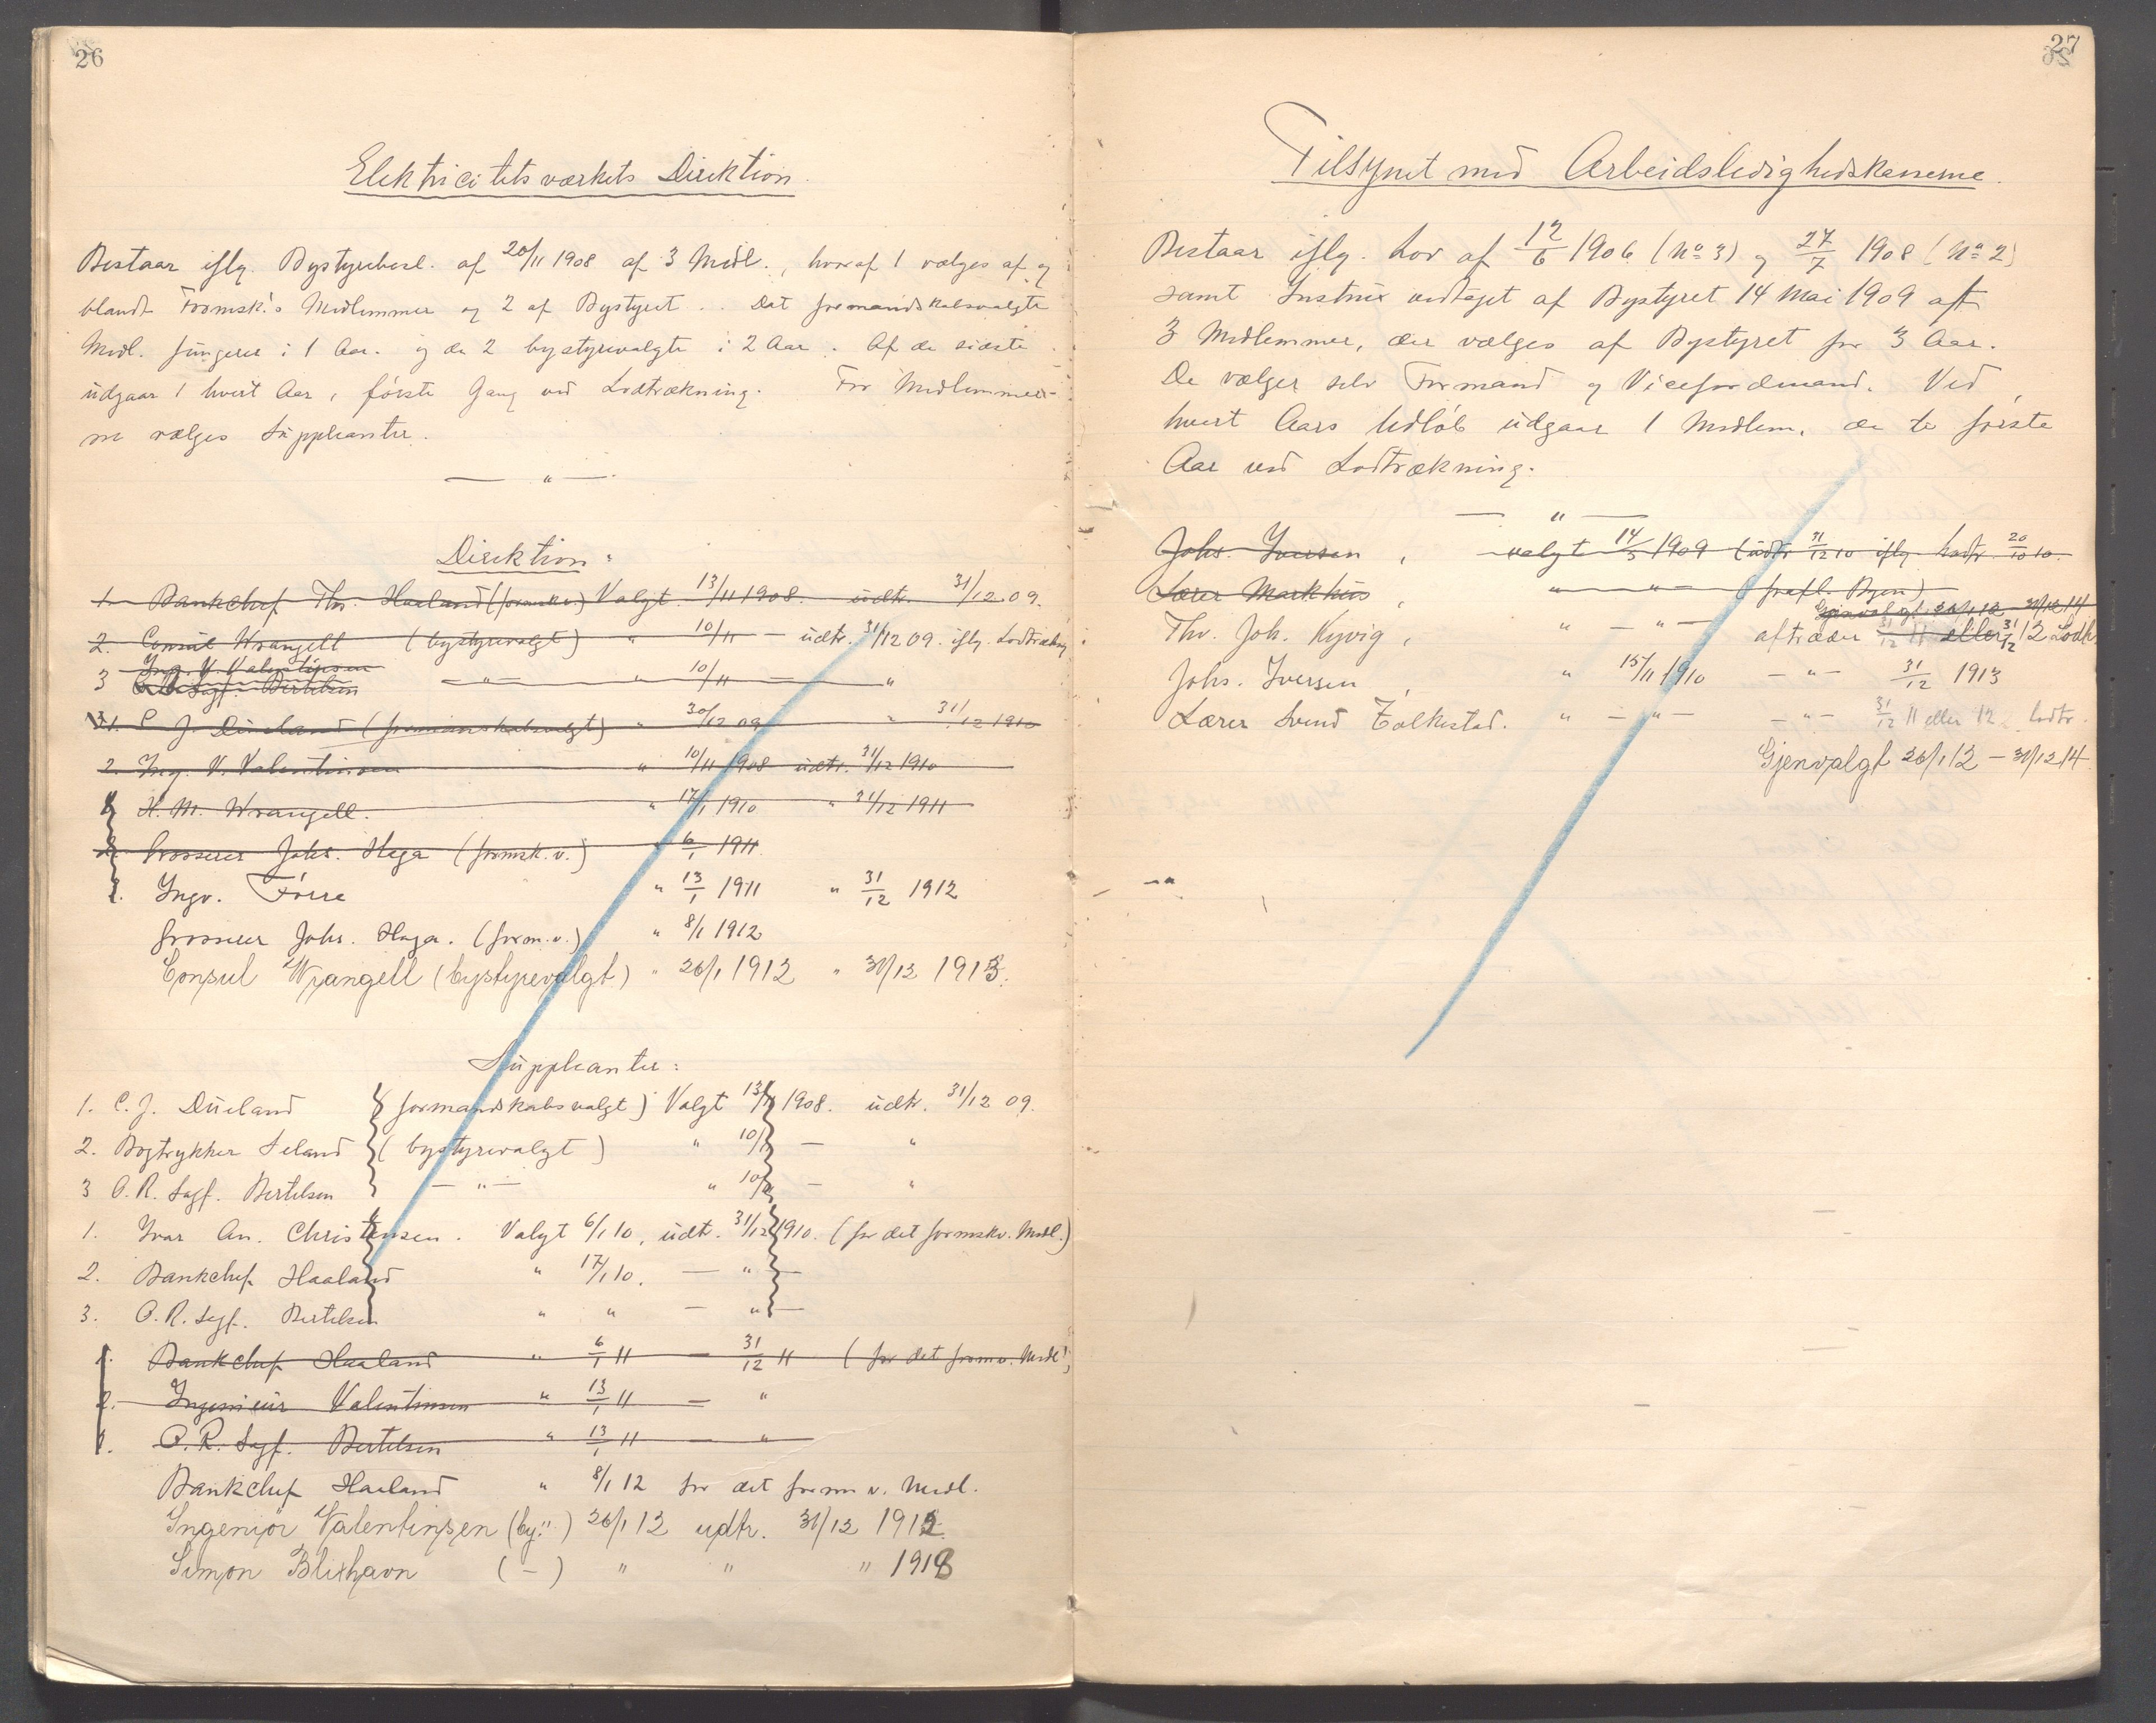 26
Elektricitetsværkets Direktion.
Bestaar iflg. Bystyrebesl. af 20/11 1908 af 3 Medl., hvoraf 1 vælges af og
blandt Formsk.'s Medlemmer og 2 af Bystyret. . Det formandskabsvalgte
Medl. fungerer i 1 Aar. og de 2 bystyrevalgte i 2 Aar. Af de sidste
udgaar 1 hvert Aar, første Gang ved Lodtrækning. For Medlemmer-
ne vælges Suppleanter.
— " —
Direktion:
1. Bankchef Thv. Haaland (formskv.) Valgt 13/11 1908. udtr. 31/12 09.
2. Consul Wrangell (bystyrevalgt) " 10/11 — udtr. 31/12 09. iflg. Lodtrækng
Ing. V. Valentinsen
3 O. R. Sagf. Bertelsen — " — " 10/11 — "
1. C. J. Dueland (formandskabsvalgt) " 30/12 09 " 31/12 1910
2. Ing. V. Valentinsen " 10/11 1908 udtr. 31/12 1910
H. M. Wrangell. " 17/1 1910 " 31/12 1911
Grosserer Johs. Haga (formsk.v.) " 6/1 1911
Ingv. Førre " 13/1 1911 " 31/12 1912
Grosserer Johs. Haga. (form.v.) " 8/1 1912
Consul Wrangell (bystyrevalgt) " 26/1 1912 " 31/12 1913.
Suppleanter:
1. C. J. Dueland (formandskabsvalgt) Valgt 13/11 1908. udtr. 31/12 09.
2. Bogtrykker Seland (bystyrevalgt) " 10/11 — "
3 O. R. Sagf. Bertelsen — " — " 10/11 — "
1. Ivar An. Christensen. Valgt 6/1 10, udtr. 31/12 1910. (for det formskv. Medl.)
2. Bankchef Haaland " 17/1 10. — " —
3. O. R. Sagf. Bertelsen " " — " —
1. Bankchef Haaland " 6/1 11 — 31/12 11 (for det formv. Medl.)
2. Ingeniør Valentinsen " 13/1 11 — "
O. R. Sagf. Bertelsen " 13/1 11 — "
Bankchef Haaland " 8/1 12 for det form v. Medl.
Ingeniør Valentinsen (by.") 26/1 12 udtr. 31/12 1912
Simon Blikhavn (—) " " " 1913
27
Tilsynet med Arbeidsledighedskasserne.
Bestaar iflg. Lov af 12/6 1906 (No 3) og 27/7 1908 (No 2)
samt Instrux vedtaget af Bystyret 14 Mai 1909 af
3 Medlemmer, der vælges af Bystyret for 3 Aar.
De vælger selv Formand og Viceformand. Ved
hvert Aars Udløb udgaar 1 Medlem, de to første
Aar ved Lodtrækning.
— " —
Johs. Iversen, valgt 14/5 1909 (udtr 31/12 10 iflg. Lodtr. 20/10 10.
Lærer Markhus, " — " — (frafl. Byen)
Gjenvalgt 26/1 12 — 31/12 14
Thv. Joh. Kyvig, " — " — aftræder 31/12 11 eller 31/12 12 Lodtr.
Johs. Iversen, " 15/11 1910 — " — 31/12 1913
Lærer Svend Tolkestad. " — " — — " — 31/12 11 eller 12 Lodtr.
Gjenvalgt 26/1 12 — 31/12 14